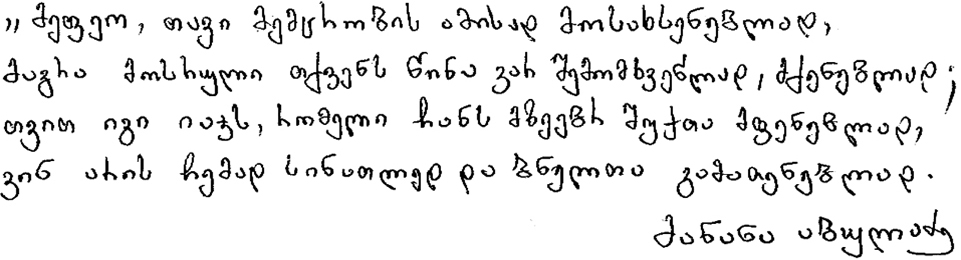 „ მეფეო, თავი მემცრობის ამისად მოსახსენებლად,
მაგრა მოსრული თქვენს წინა ვარ შემომხვეწლად, მქენებლად;
თვით იგი იაჯს, რომელი ჩანს მზეებრ შუქთა მფენებლად,
ვინ არის ჩემად სინათლედ და ბნელთა გამათენებლად.
მანანა აბულაძე